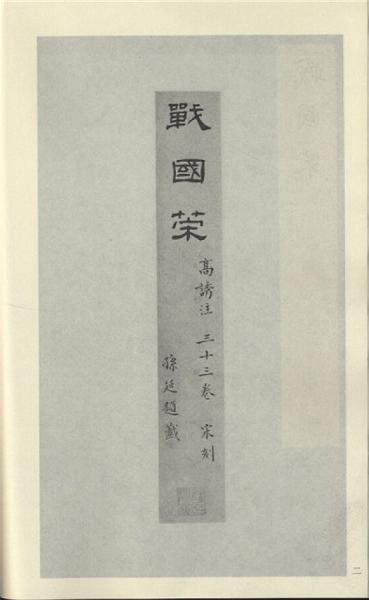 戰國策
高誘注 三十三卷 宋刻
孫延題籤
二